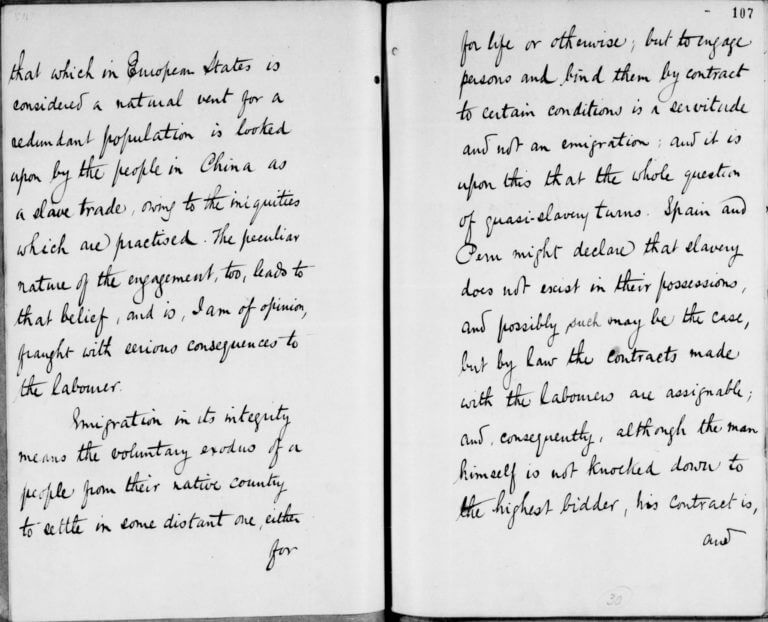 that which in European States is
considered a natural vent for a
redundant population is looked
upon by the people in China as
a slave trade, owing to the iniquities
which are practised. The peculiar
nature of the engagement, too, leads to
that belief, and is, I am of opinion,
fraught with serious consequences to
the labourer.
Emigration in its integrity
means the voluntary exodus of a
people from their native country
to settle in some distant one, either
for
107
for life or otherwise; but to engage
persons and bind them by contract
to certain conditions is a servitude
and not an emigration; and it is
upon this that the whole question
of quasi-slavery turns. Spain and
Peru might declare that slavery
does not exist in their possessions,
and possibly such may be the case,
but by law the contracts made
with the labourers are assignable;
and, consequently, although the man
himself is not knocked down to
the highest bidder, his contract is,
and
30